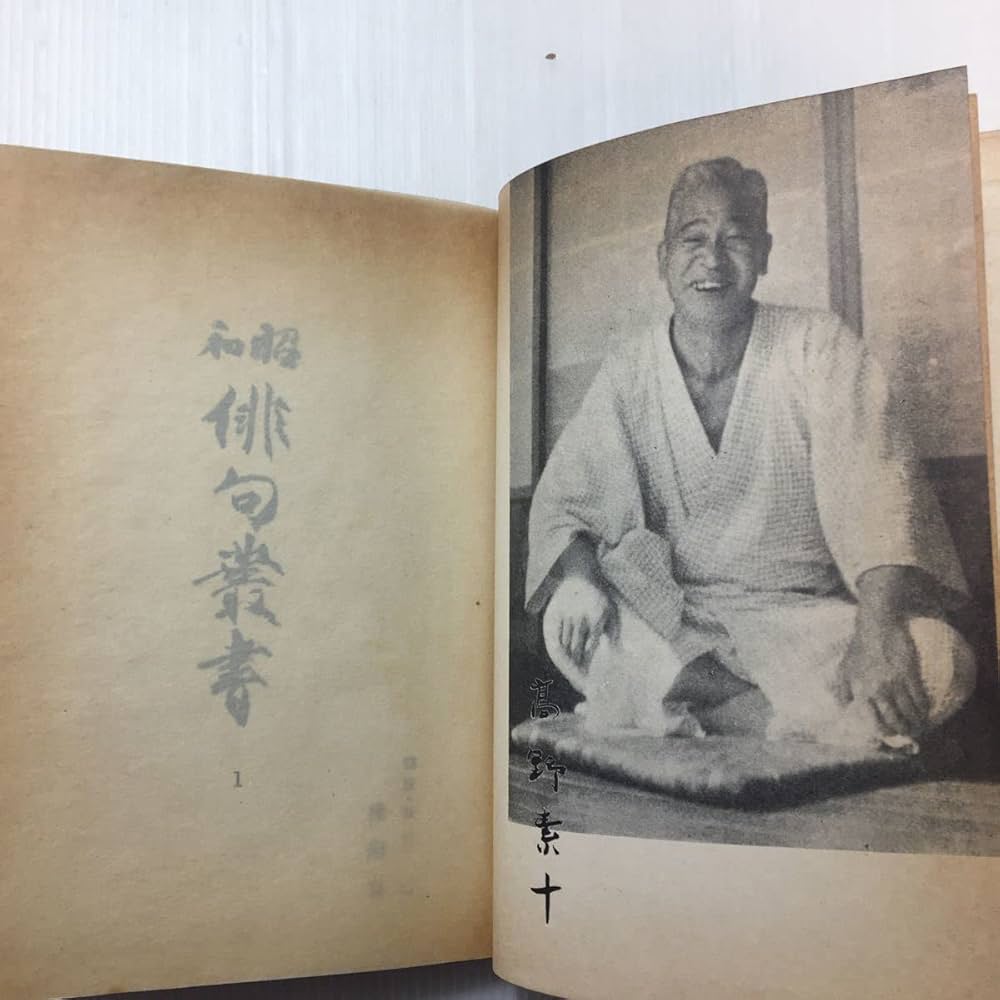 昭和
俳句叢書
1
高野素十